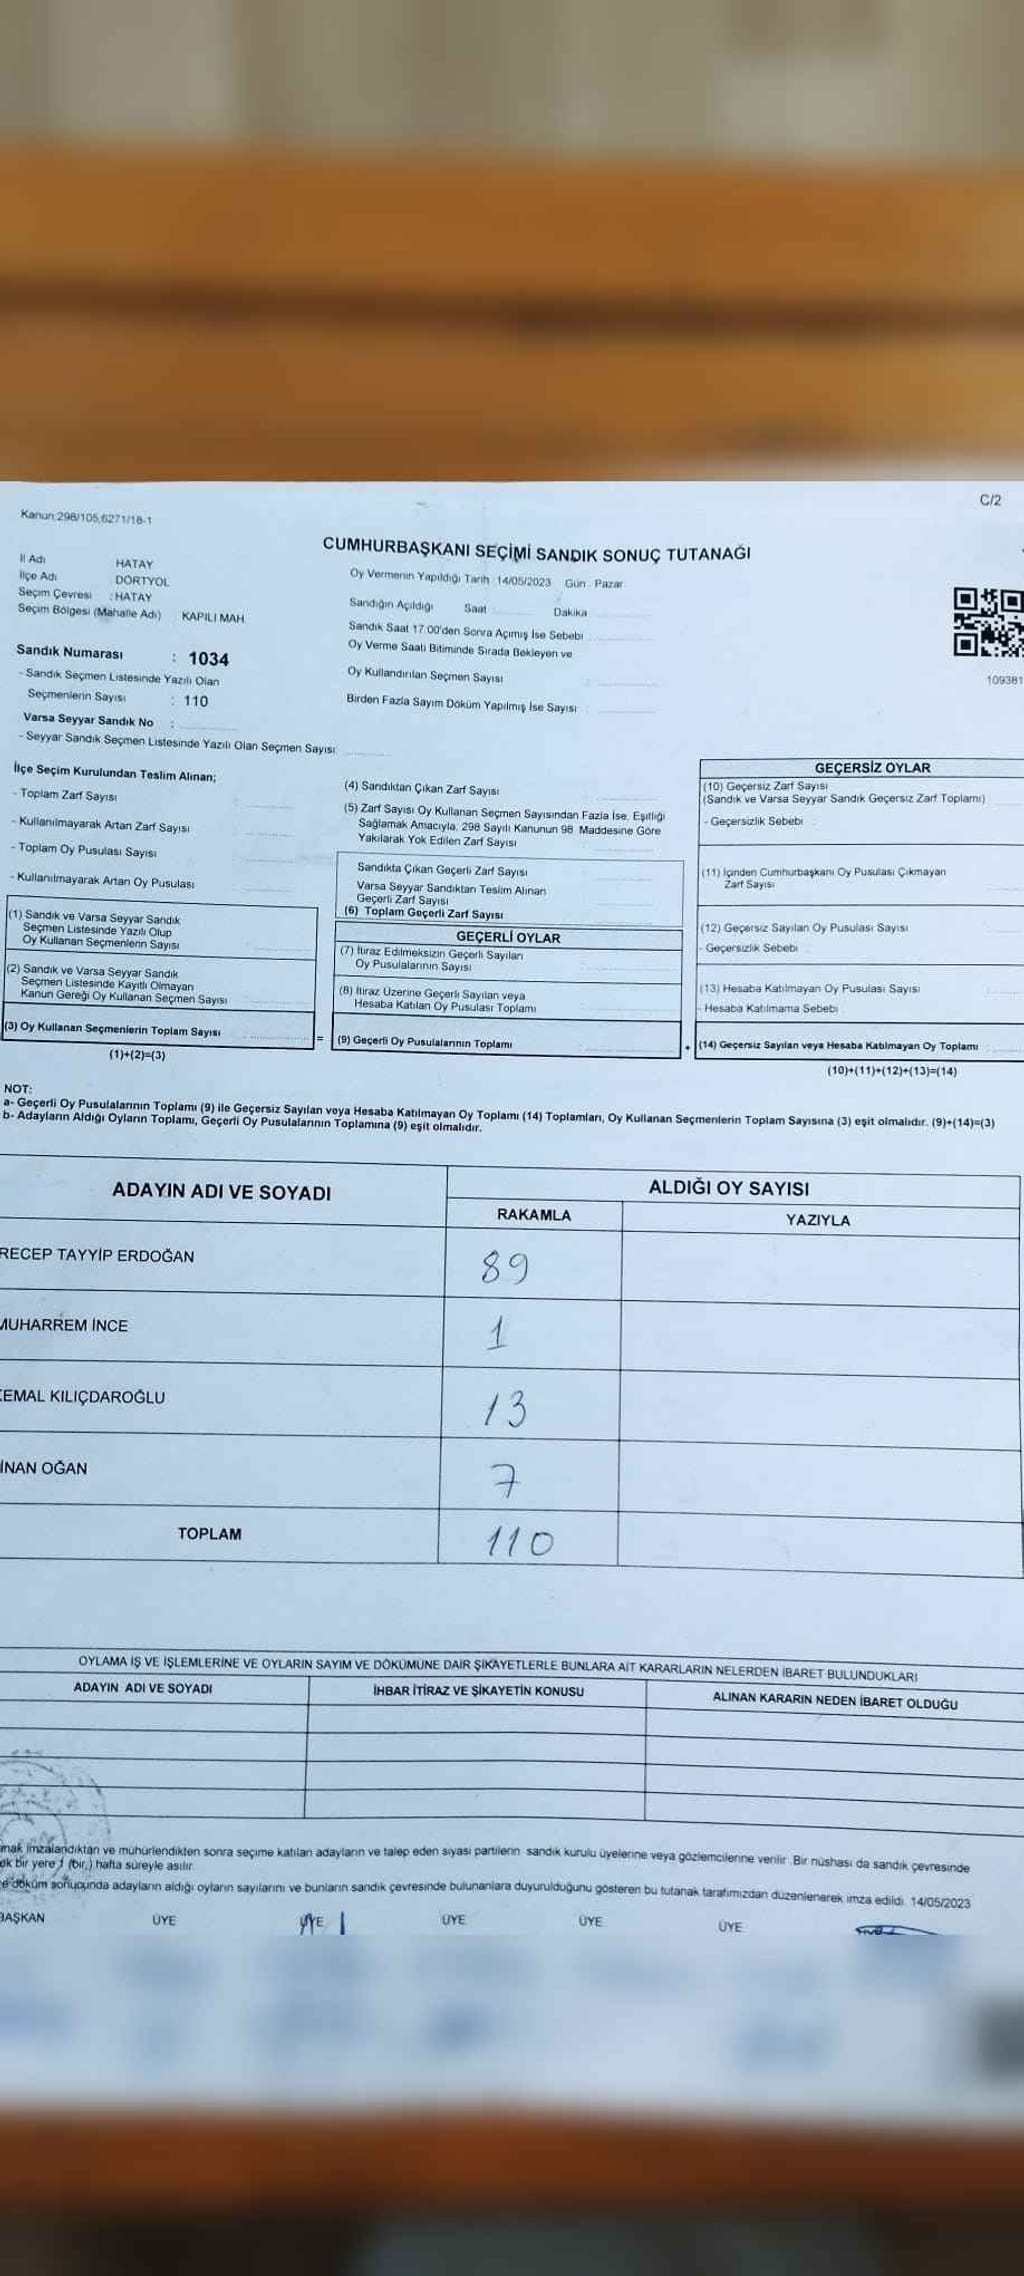 C/2
Kanun:298/105,6271/18-1
CUMHURBAŞKANI SEÇİMİ SANDIK SONUÇ TUTANAĞI
İl Adı HATAY
İlçe Adı DÖRTYOL
Seçim Çevresi : HATAY
Seçim Bölgesi (Mahalle Adı) KAPILI MAH.
Oy Vermenin Yapıldığı Tarih : 14/05/2023 Gün : Pazar
Sandığın Açıldığı Saat Dakika
Sandık Saat 17.00'den Sonra Açımış İse Sebebi
Oy Verme Saati Bitiminde Sırada Bekleyen ve
Oy Kullandırılan Seçmen Sayısı
Birden Fazla Sayım Döküm Yapılmış İse Sayısı
109381
Sandık Numarası : 1034
- Sandık Seçmen Listesinde Yazılı Olan
Seçmenlerin Sayısı : 110
Varsa Seyyar Sandık No :
- Seyyar Sandık Seçmen Listesinde Yazılı Olan Seçmen Sayısı:
İlçe Seçim Kurulundan Teslim Alınan;
- Toplam Zarf Sayısı
- Kullanılmayarak Artan Zarf Sayısı
- Toplam Oy Pusulası Sayısı
- Kullanılmayarak Artan Oy Pusulası
(1) Sandık ve Varsa Seyyar Sandık
Seçmen Listesinde Yazılı Olup
Oy Kullanan Seçmenlerin Sayısı
(2) Sandık ve Varsa Seyyar Sandık
Seçmen Listesinde Kayıtlı Olmayan
Kanun Gereği Oy Kullanan Seçmen Sayısı
(3) Oy Kullanan Seçmenlerin Toplam Sayısı
(1)+(2)=(3)
(4) Sandıktan Çıkan Zarf Sayısı
(5) Zarf Sayısı Oy Kullanan Seçmen Sayısından Fazla İse, Eşitliği
Sağlamak Amacıyla, 298 Sayılı Kanunun 98. Maddesine Göre
Yakılarak Yok Edilen Zarf Sayısı
Sandıkta Çıkan Geçerli Zarf Sayısı
Varsa Seyyar Sandıktan Teslim Alınan
Geçerli Zarf Sayısı
(6) Toplam Geçerli Zarf Sayısı
GEÇERLİ OYLAR
(7) İtiraz Edilmeksizin Geçerli Sayılan
Oy Pusulalarının Sayısı
(8) İtiraz Üzerine Geçerli Sayılan veya
Hesaba Katılan Oy Pusulası Toplamı
= (9) Geçerli Oy Pusulalarının Toplamı
GEÇERSİZ OYLAR
(10) Geçersiz Zarf Sayısı
(Sandık ve Varsa Seyyar Sandık Geçersiz Zarf Toplamı)
- Geçersizlik Sebebi
(11) İçinden Cumhurbaşkanı Oy Pusulası Çıkmayan
Zarf Sayısı
(12) Geçersiz Sayılan Oy Pusulası Sayısı
- Geçersizlik Sebebi
(13) Hesaba Katılmayan Oy Pusulası Sayısı
- Hesaba Katılmama Sebebi
+ (14) Geçersiz Sayılan veya Hesaba Katılmayan Oy Toplamı
(10)+(11)+(12)+(13)=(14)
NOT:
a- Geçerli Oy Pusulalarının Toplamı (9) ile Geçersiz Sayılan veya Hesaba Katılmayan Oy Toplamı (14) Toplamları, Oy Kullanan Seçmenlerin Toplam Sayısına (3) eşit olmalıdır. (9)+(14)=(3)
b- Adayların Aldığı Oyların Toplamı, Geçerli Oy Pusulalarının Toplamına (9) eşit olmalıdır.
ADAYIN ADI VE SOYADI ALDIĞI OY SAYISI
RAKAMLA YAZIYLA
RECEP TAYYİP ERDOĞAN 89
MUHARREM İNCE 1
EMAL KILIÇDAROĞLU 13
İNAN OĞAN 7
TOPLAM 110
OYLAMA İŞ VE İŞLEMLERİNE VE OYLARIN SAYIM VE DÖKÜMÜNE DAİR ŞİKAYETLERLE BUNLARA AİT KARARLARIN NELERDEN İBARET BULUNDUKLARI
ADAYIN ADI VE SOYADI İHBAR İTİRAZ VE ŞİKAYETİN KONUSU ALINAN KARARIN NEDEN İBARET OLDUĞU
imzalandıktan ve mühürlendikten sonra seçime katılan adayların ve talep eden siyasi partilerin sandık kurulu üyelerine veya gözlemcilerine verilir. Bir nüshası da sandık çevresinde
bir yere 1 (bir) hafta süreyle asılır.
döküm sonucunda adayların aldığı oyların sayılarını ve bunların sandık çevresinde bulunanlara duyurulduğunu gösteren bu tutanak tarafımızdan düzenlenerek imza edildi. 14/05/2023
BAŞKAN ÜYE ÜYE ÜYE ÜYE ÜYE